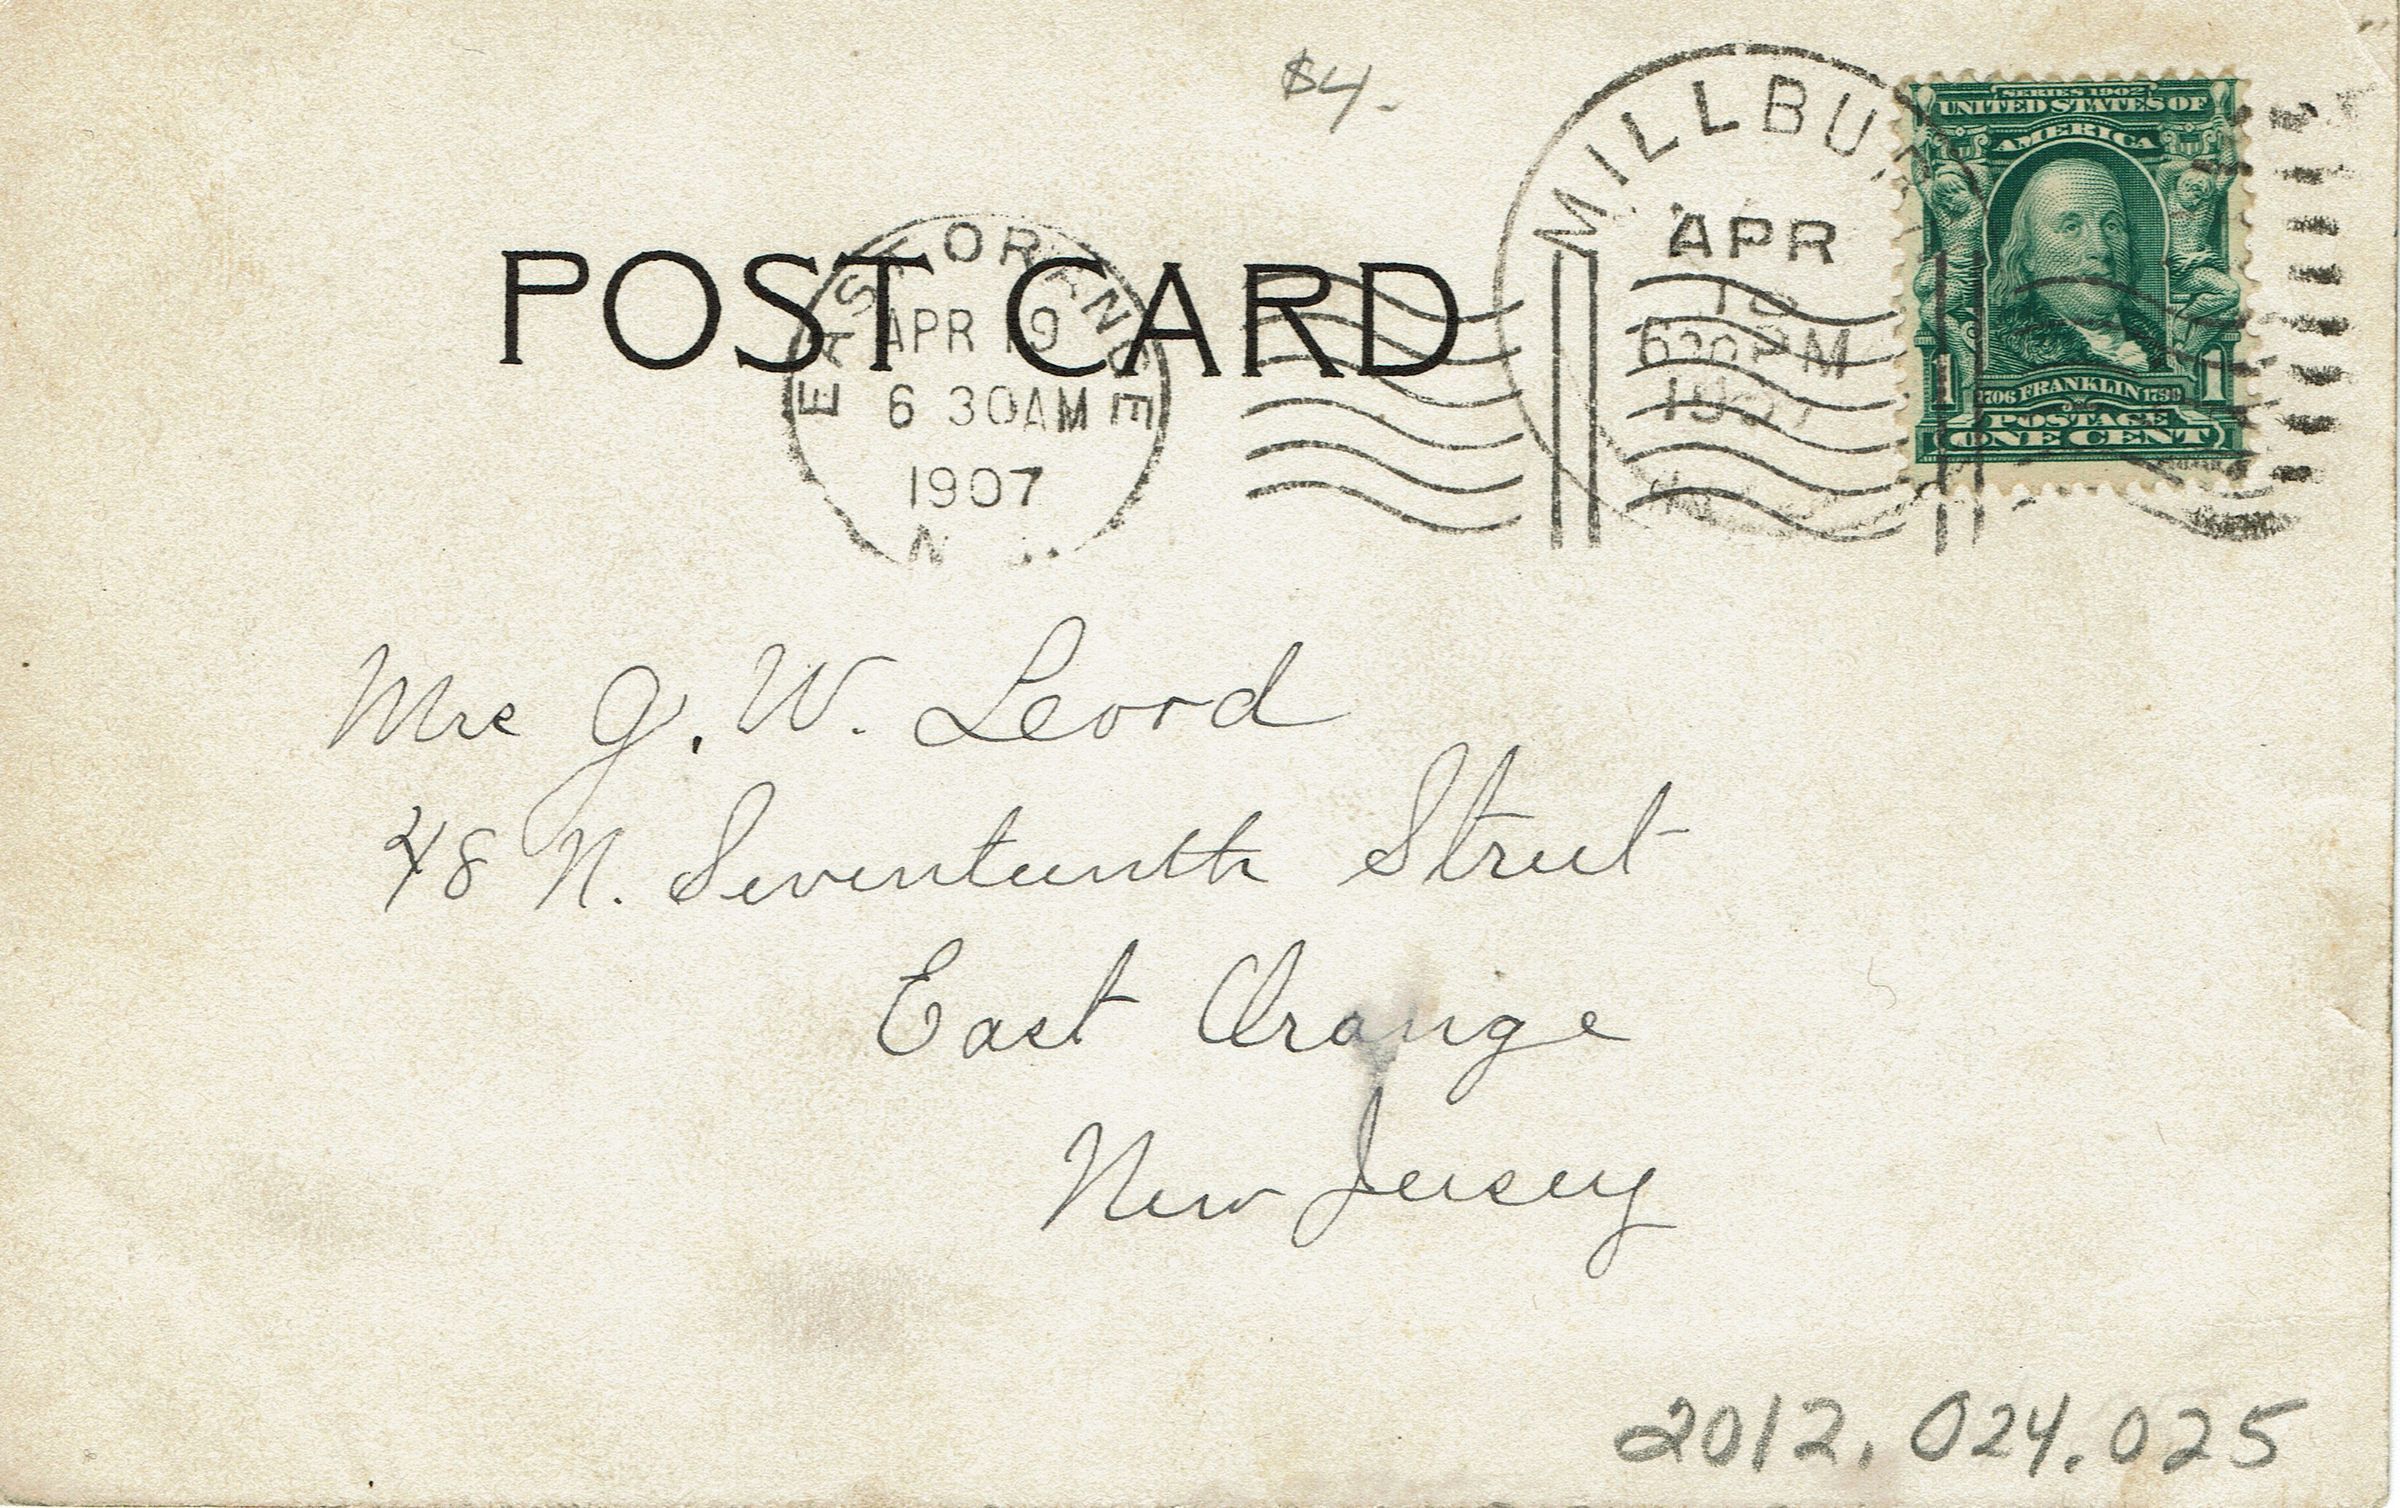 $4-
POST CARD
EAST ORANGE
APR 19
6 30AM
1907
N.J.
MILLBU
APR
18
630PM
1907
SERIES 1902
UNITED STATES OF
AMERICA
1706 FRANKLIN 1790
1 1
POSTAGE
ONE CENT
Mrs G. W. Leord
48 N. Seventeenth Street
East Orange
New Jersey
2012.024.025